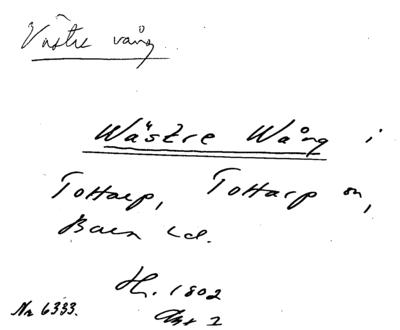 Västre vång
Wästre Wång i
Tottarp, Tottarp sn,
Bara hd.
H. 1802
Akt 2
Nr 6333.